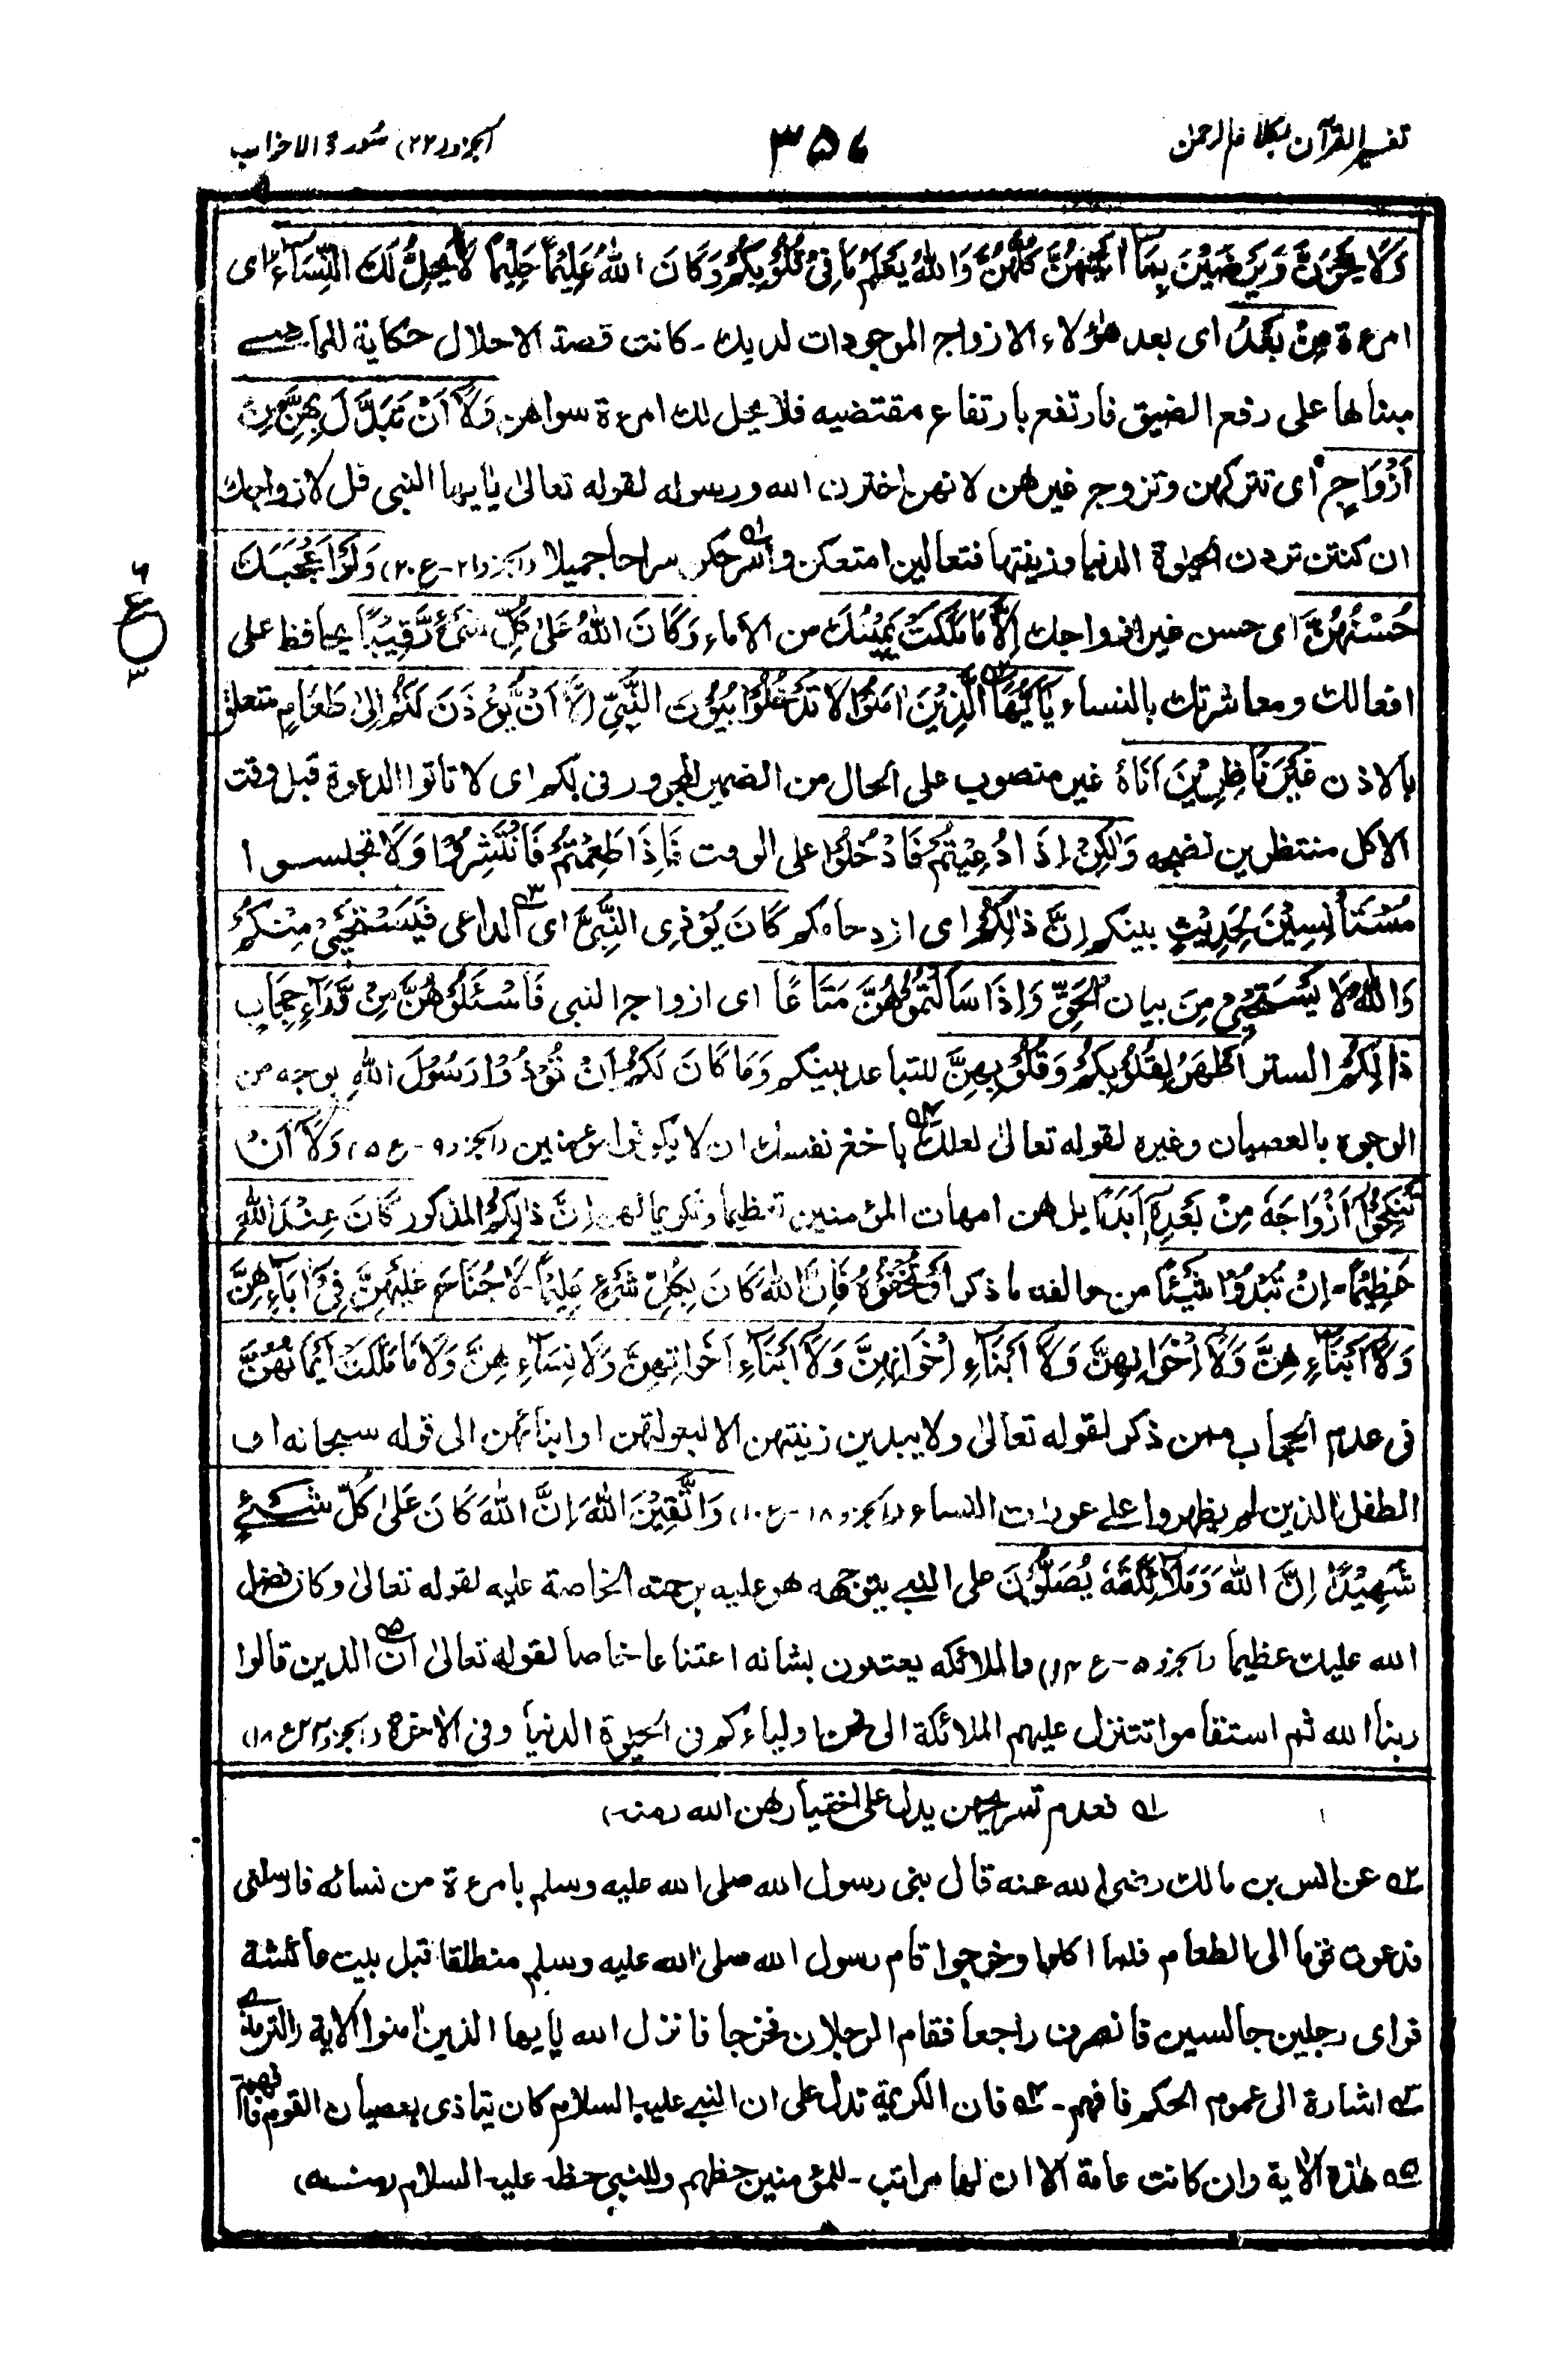 تفسير القرآن بكلام الرحمن
٣٥٧
الجزو (٢٢) سورة الاحزاب
وَلَا يَحْزَنَّ وَيَرْضَيْنَ بِمَآ اٰتَيْتَهُنَّ كُلُّهُنَّ وَاللّٰهُ يَعْلَمُ مَا فِىْ قُلُوْبِكُمْ وَكَانَ اللّٰهُ عَلِيْمًا حَلِيْمًا لَا يَحِلُّ لَكَ النِّسَآءُ اى
امرءة مِنْ بَعْدُ اى بعد هؤلاء الازواج الموجودات لديك - كانت قصة الاحلال حكاية للماضے
مبناها على رفع الضيق فارتفع بارتفاع مقتضيه فلا يحل لك امرءة سواهن وَلَآ اَنْ تَبَدَّلَ بِهِنَّ مِنْ
اَزْوَاجٍ اى تتركهن وتزوج غيرهن لانهن اخترن الله ورسوله لقوله تعالىٰ يٰايها النبى قل لازواجك
ان كنتن تردن الحيوٰة الدنيا وزينتها فتعالين امتعكن واسرحكن سراحا جميلا (الجزو ٢١ - ع ٢٠) وَلَوْ اَعْجَبَكَ
حُسْنُهُنَّ اى حسن غير ازواجك اِلَّا مَا مَلَكَتْ يَمِيْنُكَ من الاماء وَكَانَ اللّٰهُ عَلىٰ كُلِّ شَىْءٍ رَّقِيْبًا يحافظ على
افعالك ومعاشرتك بالنساء يٰٓاَيُّهَا الَّذِيْنَ اٰمَنُوْا لَا تَدْخُلُوْا بُيُوْتَ النَّبِىِّ اِلَّآ اَنْ يُّؤْذَنَ لَكُمْ اِلىٰ طَعَامٍ متعلق
بالاذن غَيْرَ نَاظِرِيْنَ اِنَاهُ غير منصوب على الحال من الضمير المجرور فى لكم اى لا تاتوا الدعوة قبل وقت
الاكل منتظرين نضجه وَلٰكِنْ اِذَا دُعِيْتُمْ فَادْخُلُوْا على الوقت فَاِذَا طَعِمْتُمْ فَانْتَشِرُوْا وَلَا تجلسوا
مُسْتَأْنِسِيْنَ لِحَدِيْثٍ بينكم اِنَّ ذٰلِكُمْ اى ازدحامكم كَانَ يُؤْذِى النَّبِىَّ اى الداعى فَيَسْتَحْيٖ مِنْكُمْ
وَاللّٰهُ لَا يَسْتَحْيٖ مِنَ بيان الْحَقِّ وَاِذَا سَاَلْتُمُوْهُنَّ مَتَاعًا اى ازواج النبى فَاسْئَلُوْهُنَّ مِنْ وَّرَآءِ حِجَابٍ
ذٰلِكُمْ الستر اَطْهَرُ لِقُلُوْبِكُمْ وَقُلُوْبِهِنَّ للتباعد بينكم وَمَا كَانَ لَكُمْ اَنْ تُؤْذُوْا رَسُوْلَ اللّٰهِ بوجه من
الوجوه بالعصيان وغيره لقوله تعالىٰ لعلك باخع نفسك ان لا يكونوا مؤمنين (الجزو ٩ - ع ٥) وَلَآ اَنْ
تَنْكِحُوْٓا اَزْوَاجَهٗ مِنْ بَعْدِهٖٓ اَبَدًا بل هن امهات المؤمنين تعظيما وتكريما لهن اِنَّ ذٰلِكُمْ المذكور كَانَ عِنْدَ اللّٰهِ
عَظِيْمًا - اِنْ تُبْدُوْا شَيْئًا من مخالفة ما ذكر اَوْ تُخْفُوْهُ فَاِنَّ اللّٰهَ كَانَ بِكُلِّ شَىْءٍ عَلِيْمًا - لَا جُنَاحَ عَلَيْهِنَّ فِىْٓ اٰبَآءِهِنَّ
وَلَآ اَبْنَآءِهِنَّ وَلَآ اِخْوَانِهِنَّ وَلَآ اَبْنَآءِ اِخْوَانِهِنَّ وَلَآ اَبْنَآءِ اَخَوَاتِهِنَّ وَلَا نِسَآءِهِنَّ وَلَا مَا مَلَكَتْ اَيْمَانُهُنَّ
فى عدم الحجاب ممن ذكر لقوله تعالىٰ ولا يبدين زينتهن الا لبعولتهن او ابنائهن الى قوله سبحانه او
الطفل الذين لم يظهروا علے عورات النساء (الجزو ١٨ - ع ١٠) وَاتَّقِيْنَ اللّٰهَ اِنَّ اللّٰهَ كَانَ عَلىٰ كُلِّ شَىْءٍ
شَهِيْدًا اِنَّ اللّٰهَ وَمَلَآئِكَتَهٗ يُصَلُّوْنَ على النبے يتوجهه هو عليه برحمته الخاصة عليه لقوله تعالىٰ وكان فضل
الله عليك عظيما (الجزو ٥ - ع ١٤) والملائكه يعتدون بشانه اعتناءا خاصا لقوله تعالىٰ ان الذين قالوا
ربنا الله ثم استقاموا تتنزل عليهم الملائكة الى نحن اولياءكم فى الحيوٰة الدنيا وفى الاخرة (الجزو ٢٤ ع ١٨)
ع
٣
١ه فعدم تسريحهن يدل على اختيارهن الله (منه)
٢ه عن انس بن مالك رضى الله عنه قال بنى رسول الله صلى الله عليه وسلم بامرءة من نسائه فارسلنى
فدعوت قوما الى الطعام فلما اكلوا وخرجوا قام رسول الله صلى الله عليه وسلم منطلقا قبل بيت عائشة
فراى رجلين جالسين فانصرف راجعا فقام الرجلان فخرجا فانزل الله يٰايها الذين اٰمنوا الاية (الترمذے
٣ه اشارة الى عموم الحكم فافهم - ٤ه فان الكريمة تدل على ان النبے عليه السلام كان يتاذى بعصيان القوم فافهم
٥ه هٰذه الاٰية وان كانت عامة الا ان لها مراتب - للمؤمنين حظهم وللنبى حظه عليه السلام (منه)